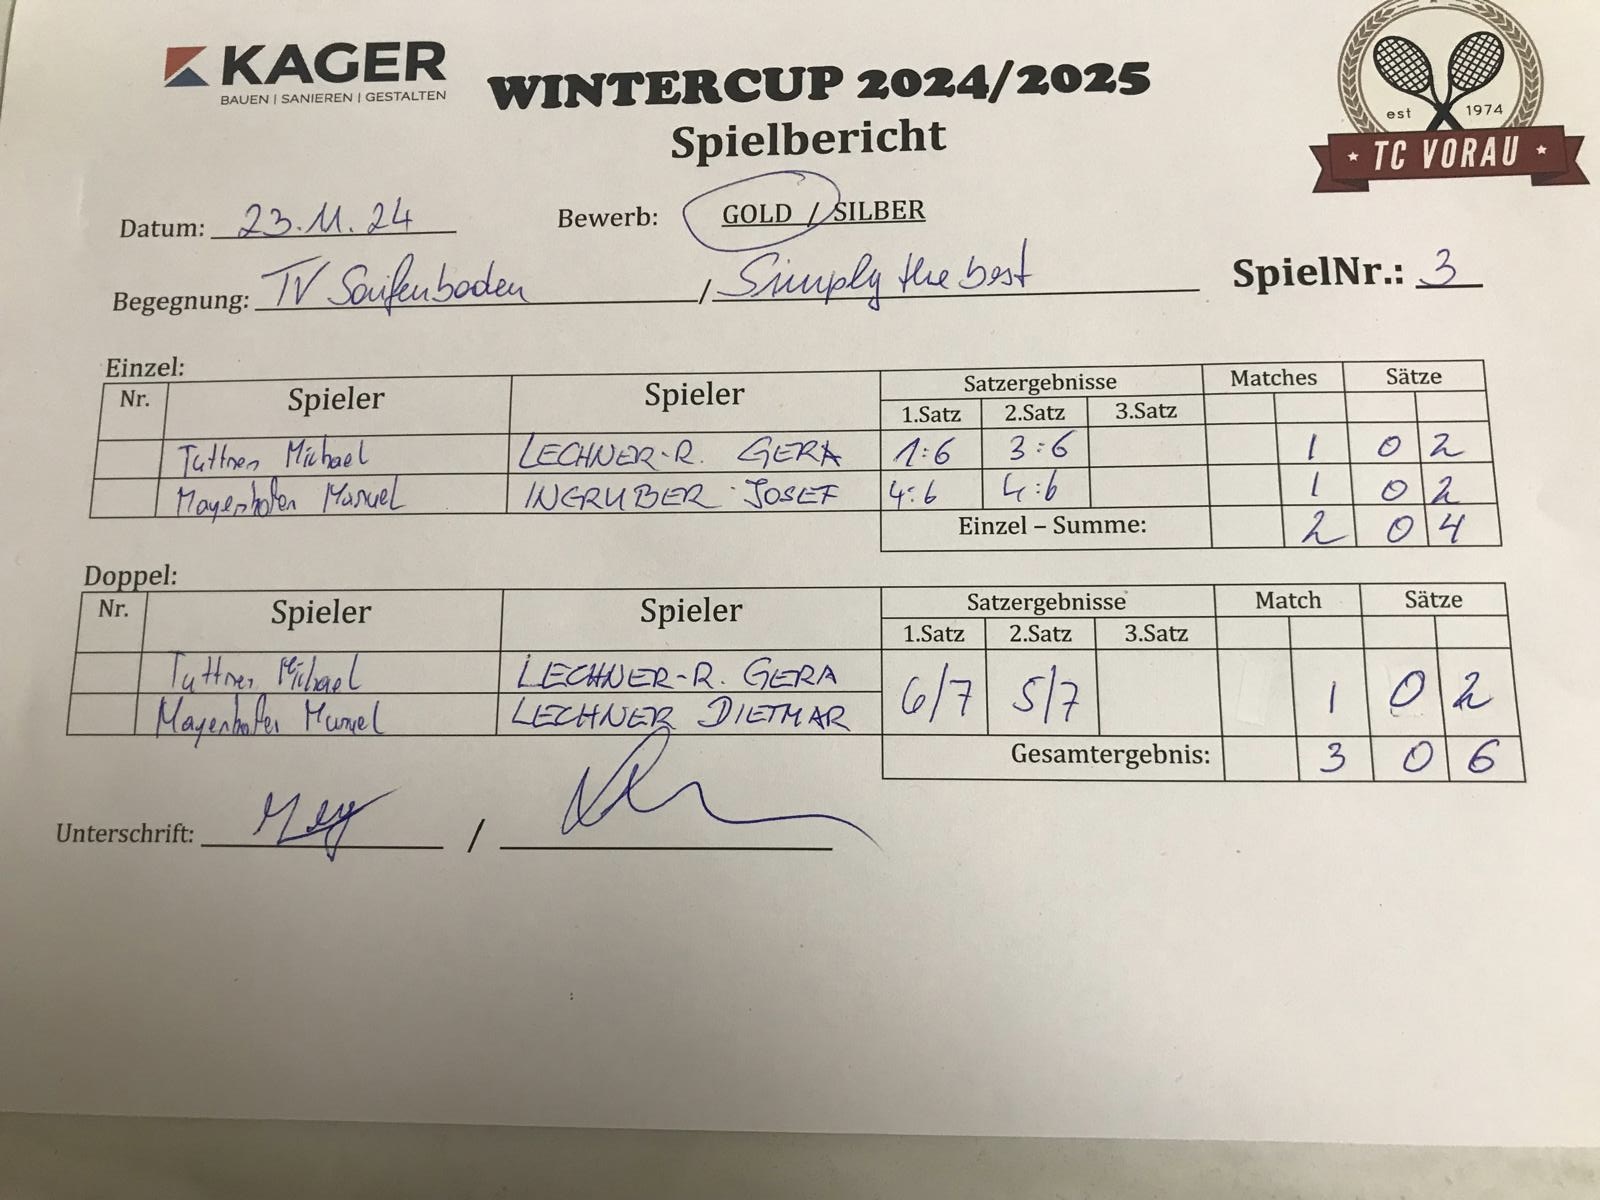 KAGER
BAUEN | SANIEREN | GESTALTEN
WINTERCUP 2024/2025
Spielbericht
est 1974
TC VORAU
Datum: 23.11.24 Bewerb: GOLD / SILBER
Begegnung: TV Saifenboden / Simply the best SpielNr.: 3
Einzel:
Nr. Spieler Spieler Satzergebnisse Matches Sätze
1.Satz 2.Satz 3.Satz
Tuttner Michael LECHNER-R. GERA 1:6 3:6 1 0 2
Mayerhofer Manuel INGRUBER JOSEF 4:6 4:6 1 0 2
Einzel – Summe: 2 0 4
Doppel:
Nr. Spieler Spieler Satzergebnisse Match Sätze
1.Satz 2.Satz 3.Satz
Tuttner Michael LECHNER-R. GERA 6/7 5/7 1 0 2
Mayerhofer Manuel LECHNER DIETMAR
Gesamtergebnis: 3 0 6
Unterschrift: /